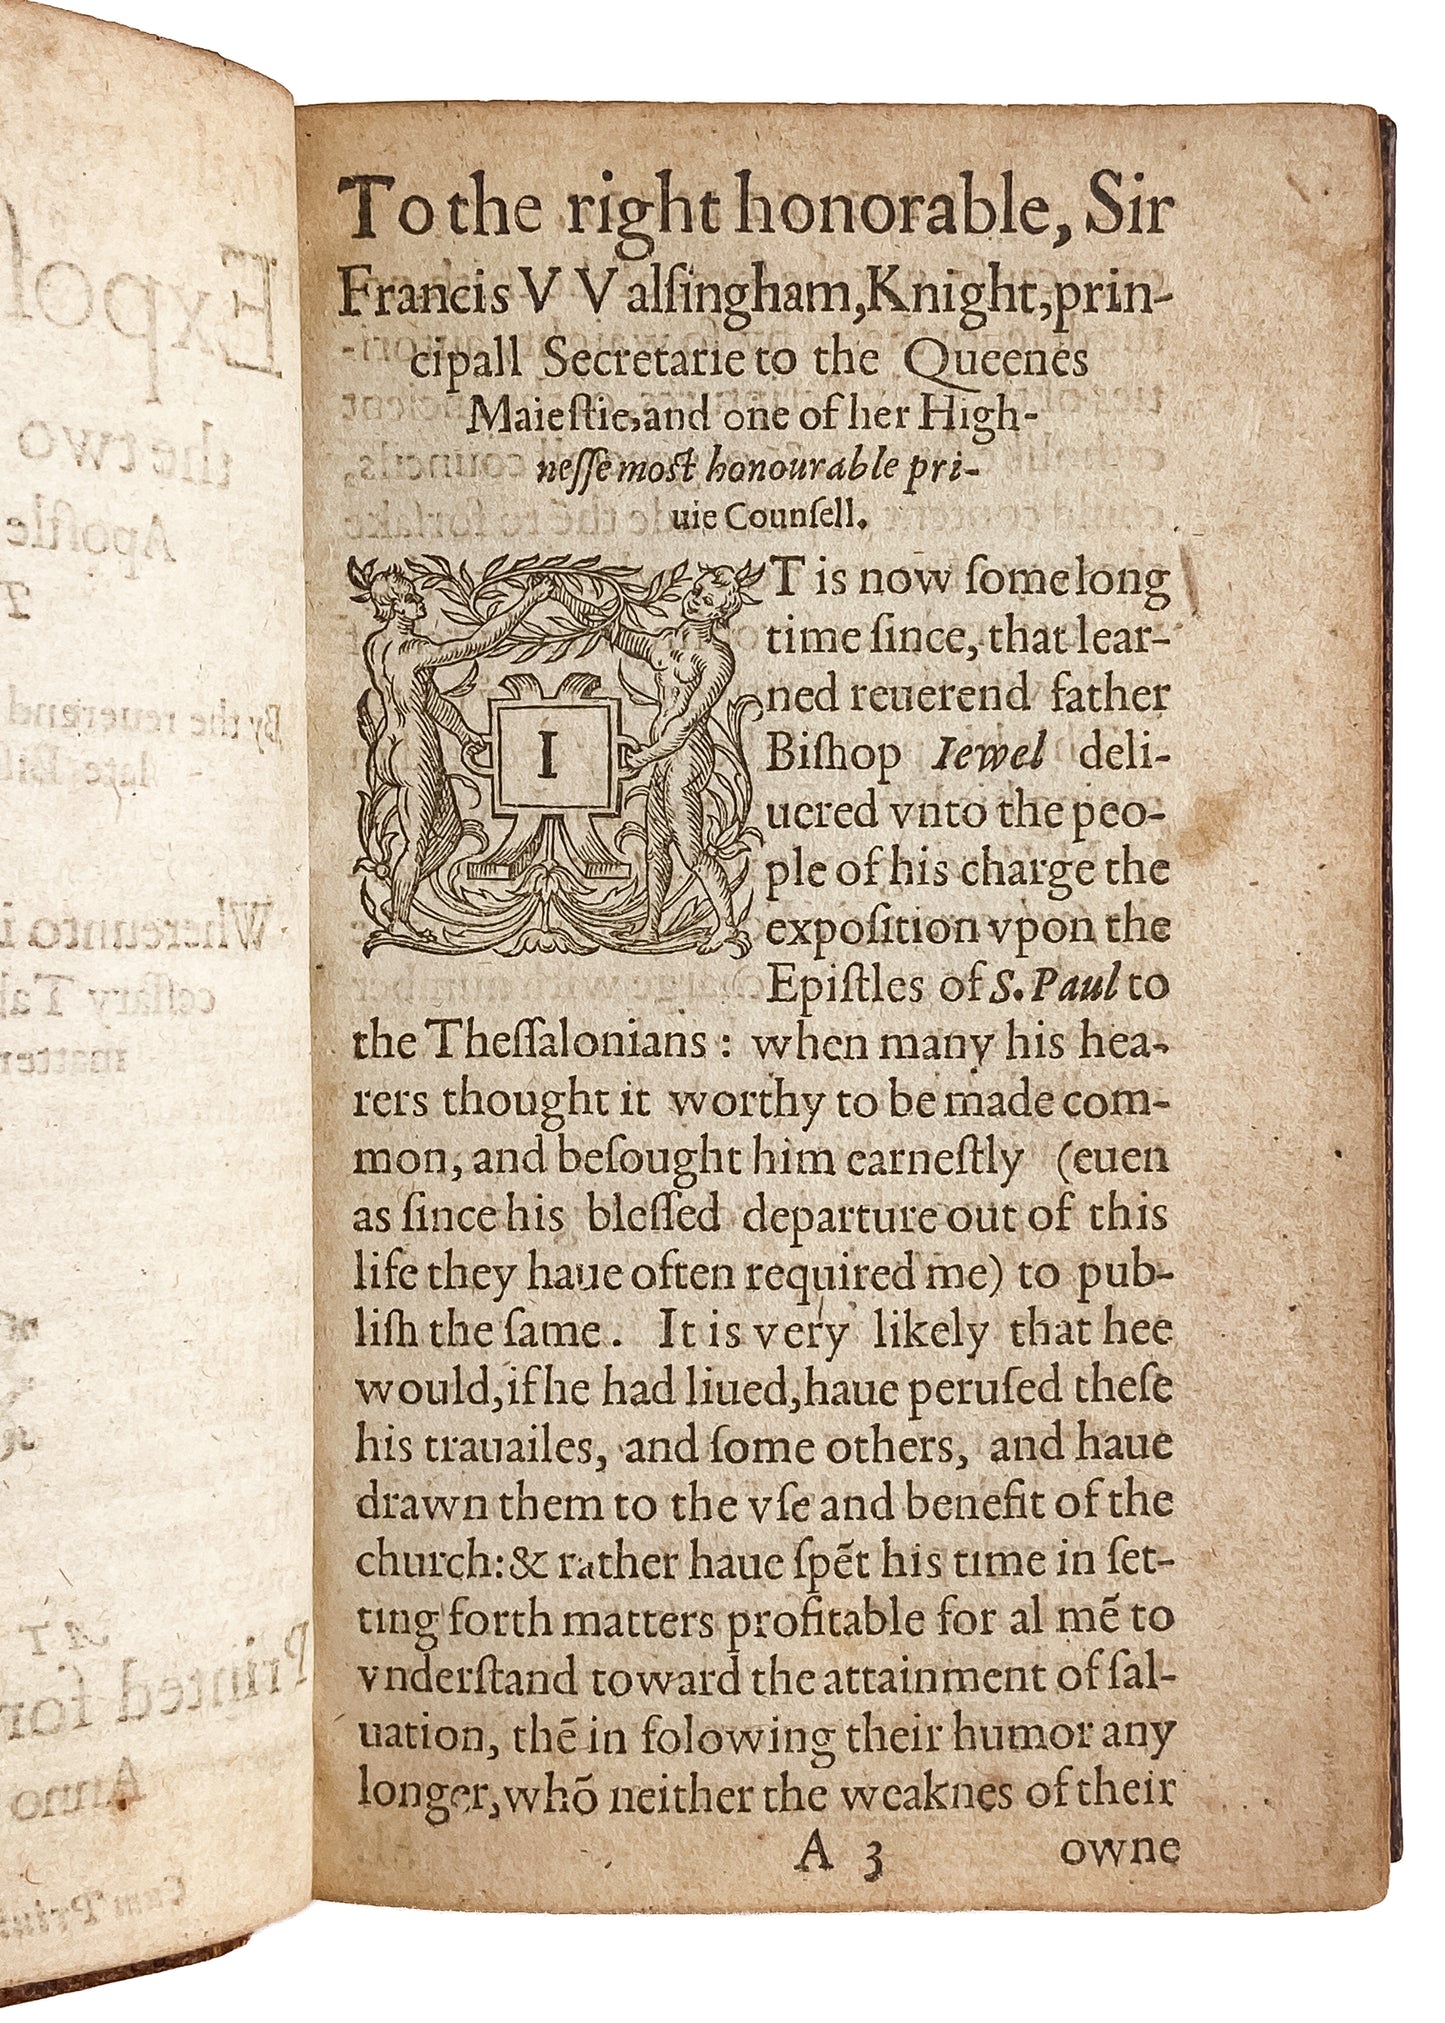 To the right honorable, Sir
Francis VValſingham, Knight, prin-
cipall Secretarie to the Queenes
Maieſtie, and one of her High-
neſſe most honourable pri-
uie Counſell.
IT is now ſome long
time ſince, that lear-
ned reuerend father
Biſhop Iewel deli-
uered vnto the peo-
ple of his charge the
expoſition vpon the
Epiſtles of S. Paul to
the Theſſalonians : when many his hea-
rers thought it worthy to be made com-
mon, and beſought him earneſtly (euen
as ſince his bleſſed departure out of this
life they haue often required me) to pub-
liſh the ſame. It is very likely that hee
would, if he had liued, haue peruſed theſe
his trauailes, and ſome others, and haue
drawn them to the vſe and benefit of the
church: & rather haue ſpẽt his time in ſet-
ting forth matters profitable for al mẽ to
vnderſtand toward the attainment of ſal-
uation, thẽ in folowing their humor any
longer, whõ neither the weaknes of their
A 3 owne